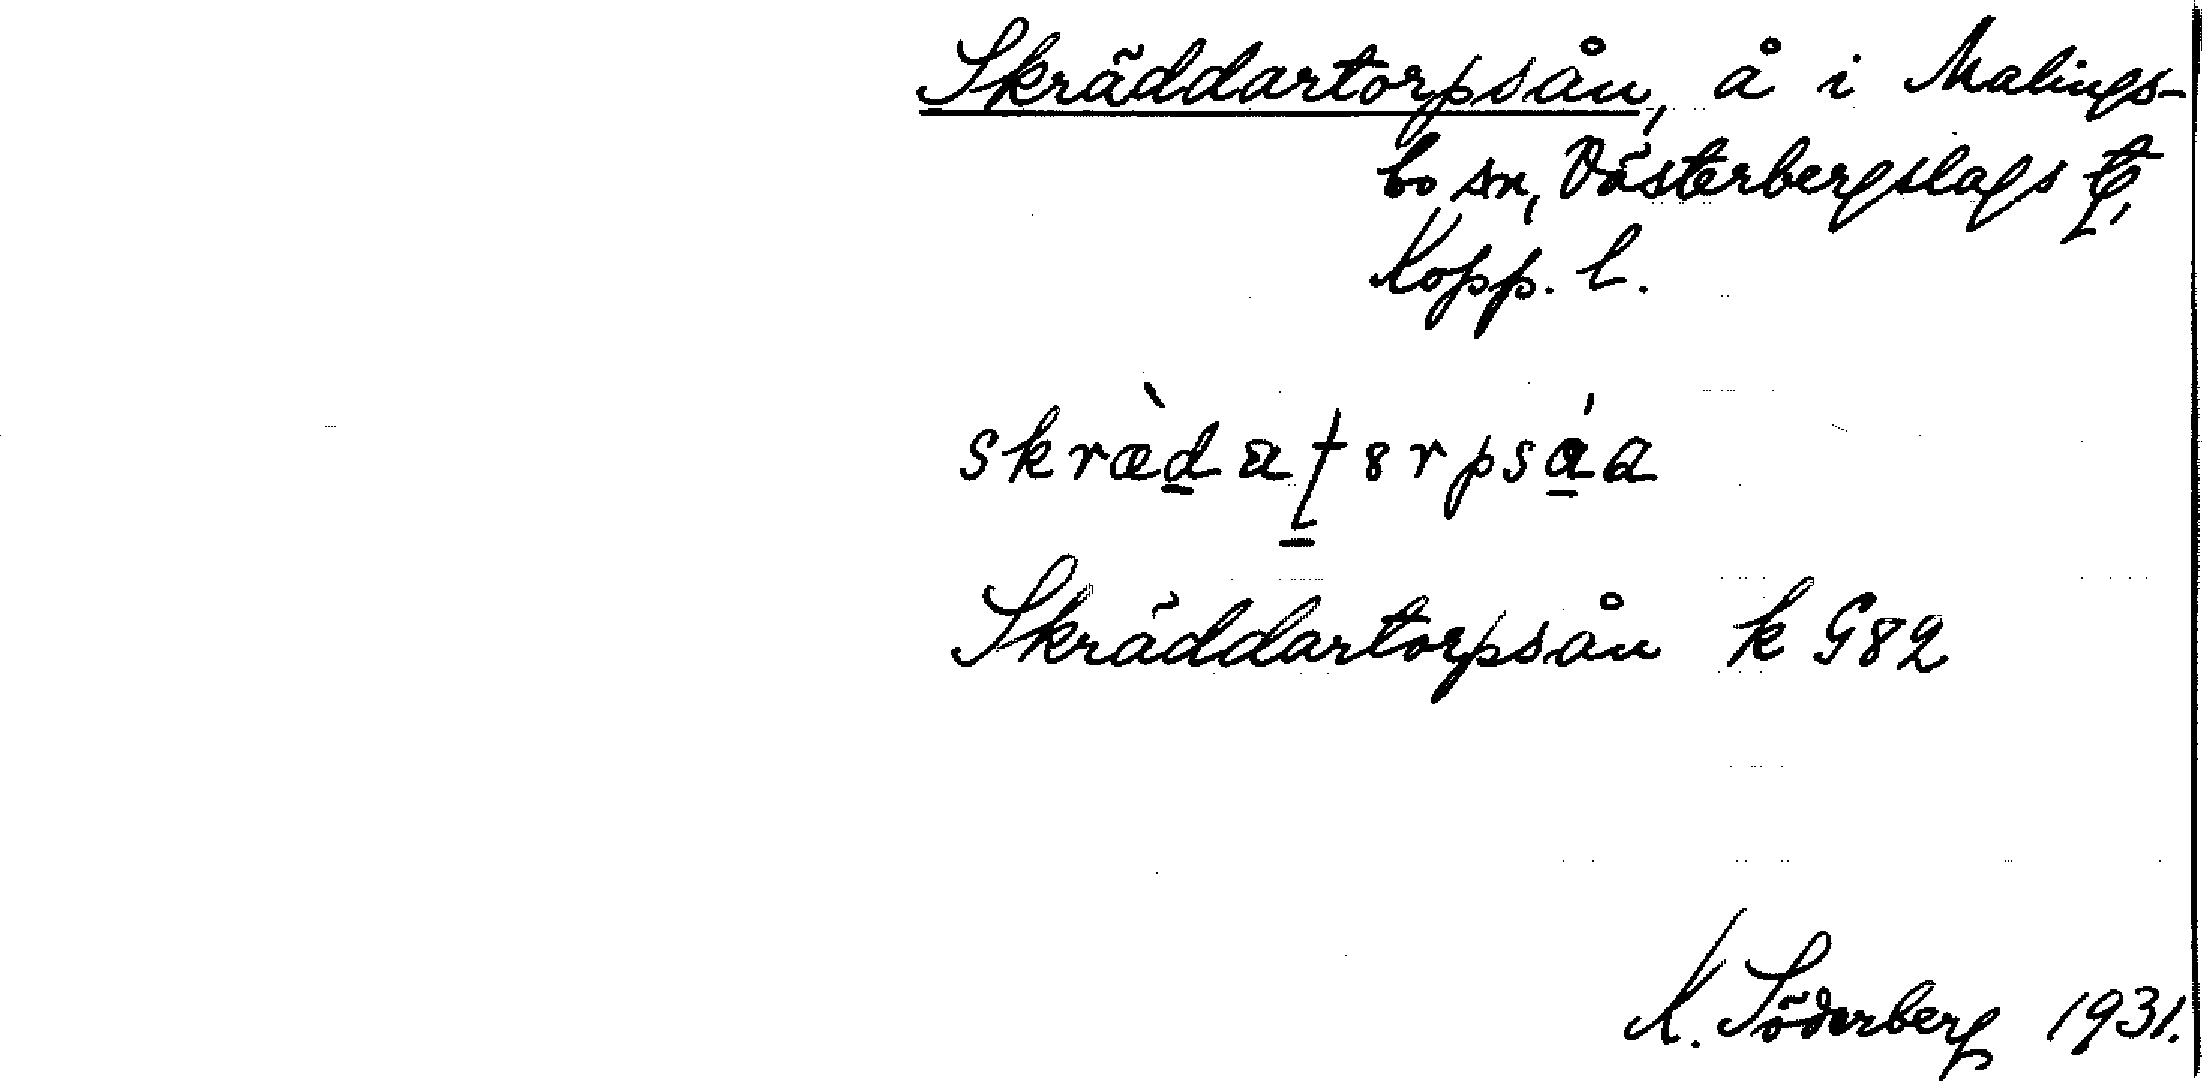 Skräddartorpsån, å i Malings-
bo sn, Västerbergslags tg,
Kopp. l.
skrædaʈ8rpsáa
Skräddartorpsån k G82
K. Söderberg 1931.